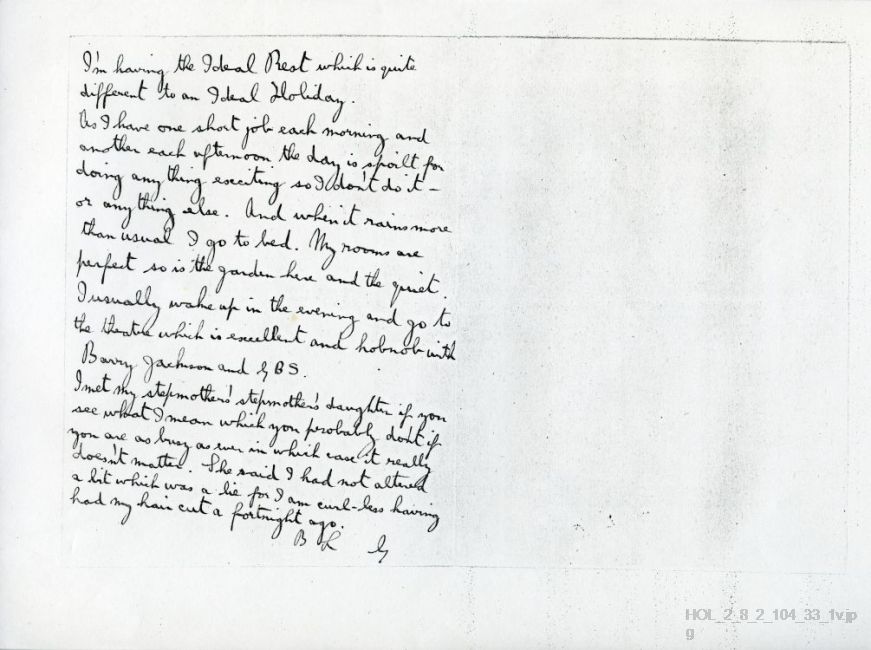 I'm having the Ideal Rest which is quite
different to an Ideal Holiday.
As I have one short job each morning and
another each afternoon the day is spoilt for
doing anything exciting so I don't do it –
or anything else. And when it rains more
than usual I go to bed. My rooms are
perfect so is the garden here and the quiet.
I usually wake up in the evening and go to
the theatre which is excellent and hobnob with
Barry Jackson and GBS.
I met my stepmother's stepmother's daughter if you
see what I mean which you probably don't if
you are as busy as ever in which case it really
doesn't matter. She said I had not altered
a bit which was a lie for I am curl-less having
had my hair cut a fortnight ago.
B L G
HOL_2_8_2_104_33_1v.jp
g